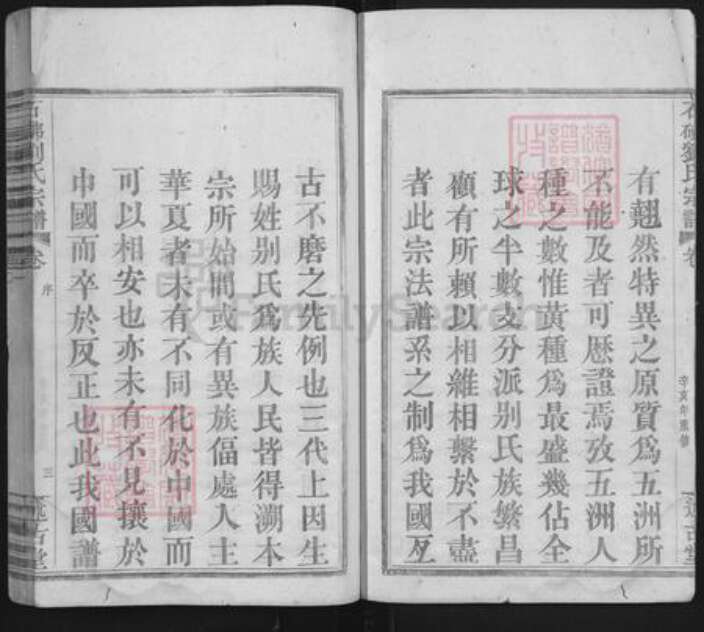 有翹然特異之原質爲五洲所
不能及者可歷證焉攷五洲人
種之數惟黃種爲最盛幾佔全
球之半數支分派别氏族繁昌
顧有所賴以相維相繫於不盡
者此宗法譜系之制爲我國亙
辛亥年重修
古不磨之先例也三代上因生
賜姓别氏爲族人民皆得溯本
宗所始間或有異族偪處入主
華夏者未有不同化於中國而
可以相安也亦未有不見攘於
中國而卒於反正也此我國譜
劉氏宗譜
卷
序
三
FamilySearch